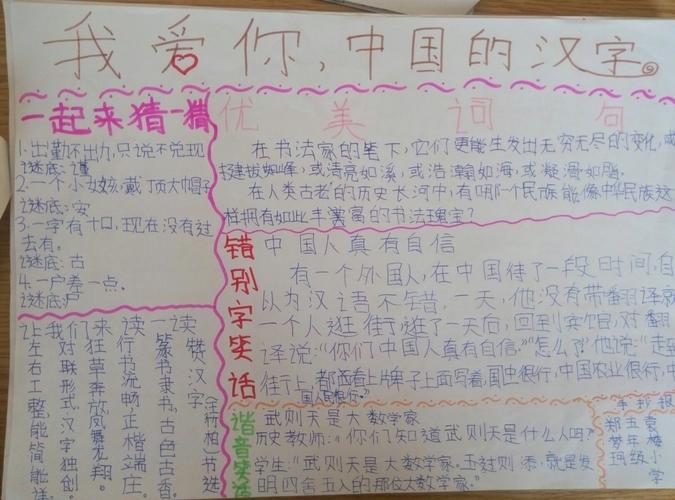 我爱你,中国的汉字
一起来猜一猜
1.出勤不出力,只说不兑现
谜底:谨
2.一个小女孩,戴顶大帽子
谜底:安
3.一字有十口,现在没有过
去有。
谜底:古
4.一户差一点.
谜底:尸
优美词句
在书法家的笔下,它们更能生发出无穷无尽的变化,或
挺拔如峰,或清亮如溪,或浩瀚如海,或凝滑如脂.
在人类古老的历史长河中,有哪个民族能像中华民族这
样拥有如此丰富的书法瑰宝?
错别字笑话
中国人真有自信
有一个外国人,在中国待了一段时间,自
以为汉语不错,一天,他没有带翻译就
一个人逛街,逛了一天后,回到宾馆,对翻
译说:“你们中国人真有自信.”“怎么了?”他说:“走到
街上,都看上牌子上面写着,国很行,中国农业很行,中
国人民很行.”
谐音笑话
武则天是大数学家
历史教师:“你们知道武则天是什么人吗?
学生:“武则天是大数学家.五过则添,就是发
明四舍五入的那位大数学家.
读赞汉字
(王科柏)节选
一篆书隶书,古色古香.
读行书流畅,正楷端庄.
来狂草奔放,凤舞龙翔.
我们对联形式,汉字独创.
让左右工整,能简能详.
手抄报
郑玉
梦年
小学